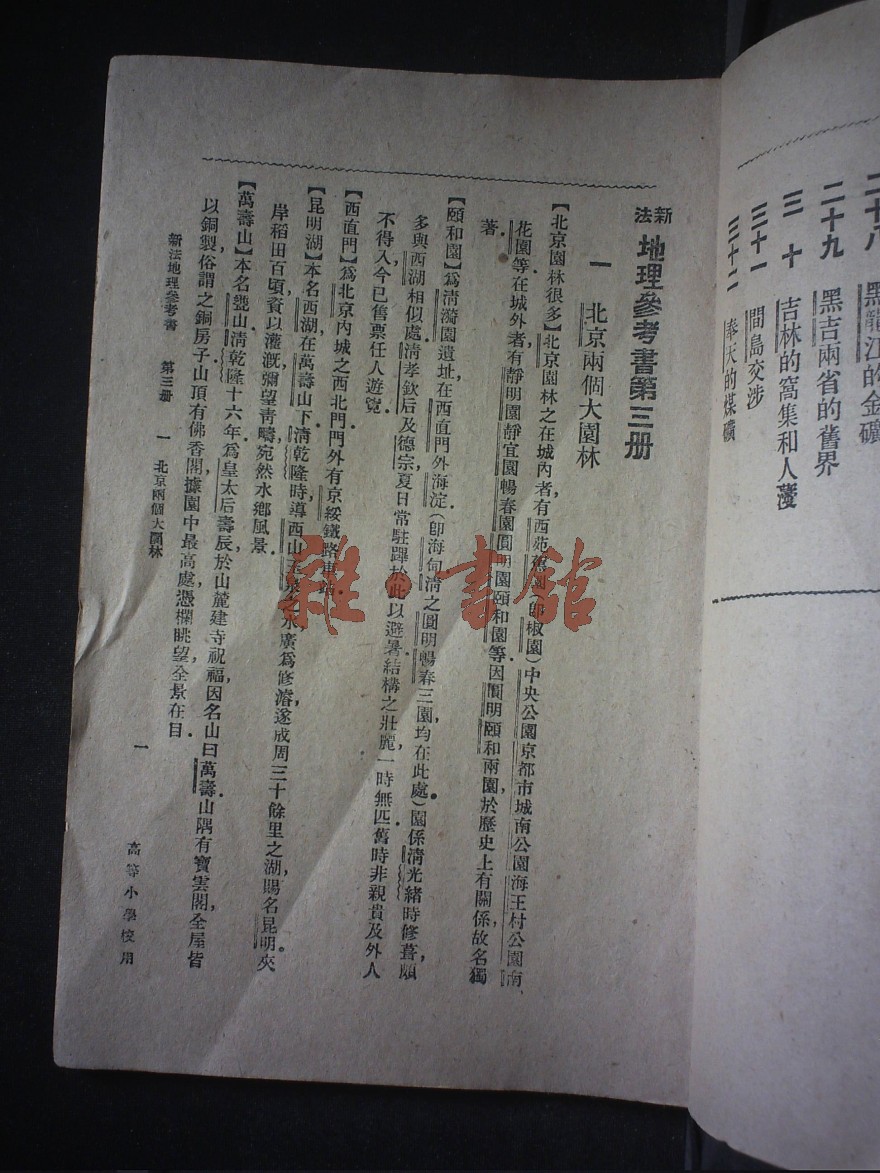 二十八 黑龍江的金礦
二十九 黑吉兩省的舊界
三十 吉林的窩集和人蓡
三十一 間島交涉
三十二 奉天的煤礦
新法地理參考書第三册
一 北京兩個大園林
【北京園林很多】北京園林之在城內者有西苑蕉園(卽椒園)中央公園京都市城南公園海王村公園南
花園等在城外者有靜明園靜宜園暢春園圓明園頤和園等因圓明頤和兩園於歷史上有關係故名獨
著.
【頤和園】爲淸漪園遺址在西直門外海淀(卽海甸淸之圓明暢春三園,均在此處)園係淸光緖時修葺,頗
多與西湖相似處.淸孝欽后及德宗夏日常駐蹕於此以避暑結構之壯麗,一時無匹舊時非親貴及外人
不得入今已售票任人遊覽.
【西直門】爲北京內城之西北門門外有京綏鐵路車站.
【昆明湖】本名西湖,在萬壽山下,淸乾隆時導西山玉泉之水,廣爲修濬遂成周三十餘里之湖,賜名昆明。夾
岸稻田百頃,資以灌漑彌望靑疇宛然水鄕風景
【萬壽山】本名甕山淸乾隆十六年爲皇太后壽辰於山麓建寺祝福,因名山曰萬壽.山隅有寶雲閣,全屋皆
以銅製俗謂之銅房子山頂有佛香閣,據園中最高處,憑欄眺望全景在目.
新法地理參考書 第三册 一 北京兩個大園林 一 高等小學校用
雜·書館